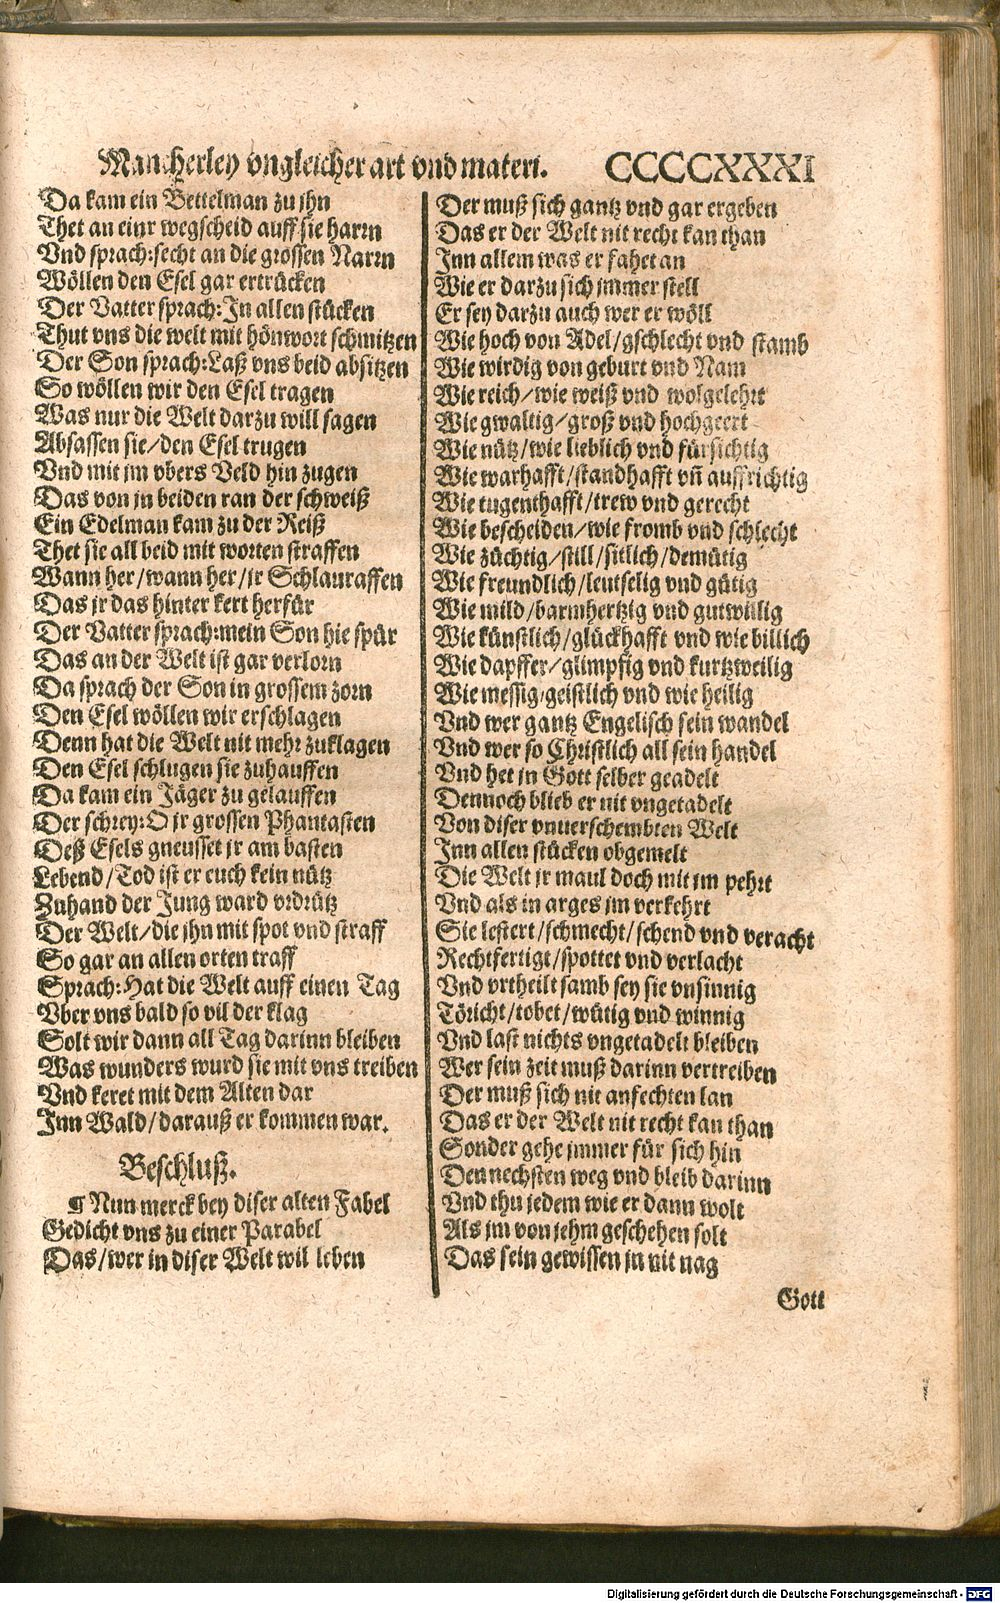 Mancherley vngleicher art vnd materi. CCCCXXXI
Da kam ein Bettelman zu jhn
Thet an einr wegscheid auff sie harrn
Vnd sprach:secht an die grossen Narrn
Wöllen den Esel gar ertrücken
Der Vatter sprach:In allen stücken
Thut vns die welt mit hönwort schmitzen
Der Son sprach:Laß vns beid absitzen
So wöllen wir den Esel tragen
Was nur die Welt darzu will sagen
Absassen sie/den Esel trugen
Vnd mit jm vbers Veld hin zugen
Das von jn beiden ran der schweiß
Ein Edelman kam zu der Reiß
Thet sie all beid mit worten straffen
Wann her/wann her/jr Schlauraffen
Das jr das hinter kert herfür
Der Vatter sprach:mein Son hie spür
Das an der Welt ist gar verlorn
Da sprach der Son in grossem zorn
Den Esel wöllen wir erschlagen
Denn hat die Welt nit mehr zuklagen
Den Esel schlugen sie zuhauffen
Da kam ein Jäger zu gelauffen
Der schrey:O jr grossen Phantasten
Deß Esels gneusset jr am basten
Lebend/Tod ist er euch kein nütz
Zuhand der Jung ward vrdrütz
Der Welt/die jhn mit spot vnd straff
So gar an allen orten traff
Sprach:Hat die Welt auff einen Tag
Vber vns bald so vil der klag
Solt wir dann all Tag darinn bleiben
Was wunders wurd sie mit vns treiben
Vnd keret mit dem Alten dar
Inn Wald/darauß er kommen war.
Beschluß.
¶ Nun merck bey diser alten Fabel
Gedicht vns zu einer Parabel
Das/wer in diser Welt wil leben
Der muß sich gantz vnd gar ergeben
Das er der Welt nit recht kan than
Inn allem was er fahet an
Wie er darzu sich jmmer stell
Er sey darzu auch wer er wöll
Wie hoch von Adel/gschlecht vnd stamb
Wie wirdig von geburt vnd Nam
Wie reich/wie weiß vnd wolgelehrt
Wie gwaltig/groß vnd hochgeert
Wie nütz/wie lieblich vnd fürsichtig
Wie warhafft/standhafft vñ auffrichtig
Wie tugenthafft/trew vnd gerecht
Wie bescheiden/wie fromb vnd schlecht
Wie züchtig/still/sitlich/demütig
Wie freundlich/leutselig vnd gütig
Wie mild/barmhertzig vnd gutwillig
Wie künstlich/glückhafft vnd wie billich
Wie dapffer/glimpfig vnd kurtzweilig
Wie messig/geistlich vnd wie heilig
Vnd wer gantz Engelisch sein wandel
Vnd wer so Christlich all sein handel
Vnd het jn Gott selber geadelt
Dennoch blieb er nit vngetadelt
Von diser vnuerschembten Welt
Inn allen stücken obgemelt
Die Welt jr maul doch mit jm pehrt
Vnd als in arges jm verkehrt
Sie lestert/schmecht/schend vnd veracht
Rechtfertigt/spottet vnd verlacht
Vnd vrtheilt samb sey sie vnsinnig
Töricht/tobet/wütig vnd winnig
Vnd last nichts vngetadelt bleiben
Wer sein zeit muß darinn vertreiben
Der muß sich nit anfechten lan
Das er der Welt nit recht kan than
Sonder gehe jmmer für sich hin
Den nechsten weg vnd bleib darinn
Vnd thu jedem wie er dann wolt
Als jm von jehm geschehen solt
Das sein gewissen jn nit nag
Gott
Digitalisierung gefördert durch die Deutsche Forschungsgemeinschaft - DFG